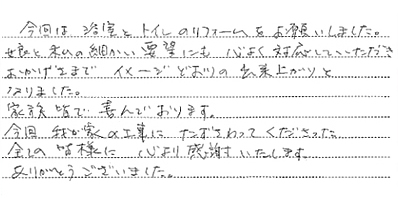 今回は浴室とトイレのリフォームをお願いしました。
娘と私の細かい要望にも心よく対応していただき
おかげさまで イメージどおりの出来上がりと
なりました。
家族皆で喜んでおります。
今回我が家の工事にたずさわってくださった
全ての皆様に心より感謝いたします。
ありがとうございました。